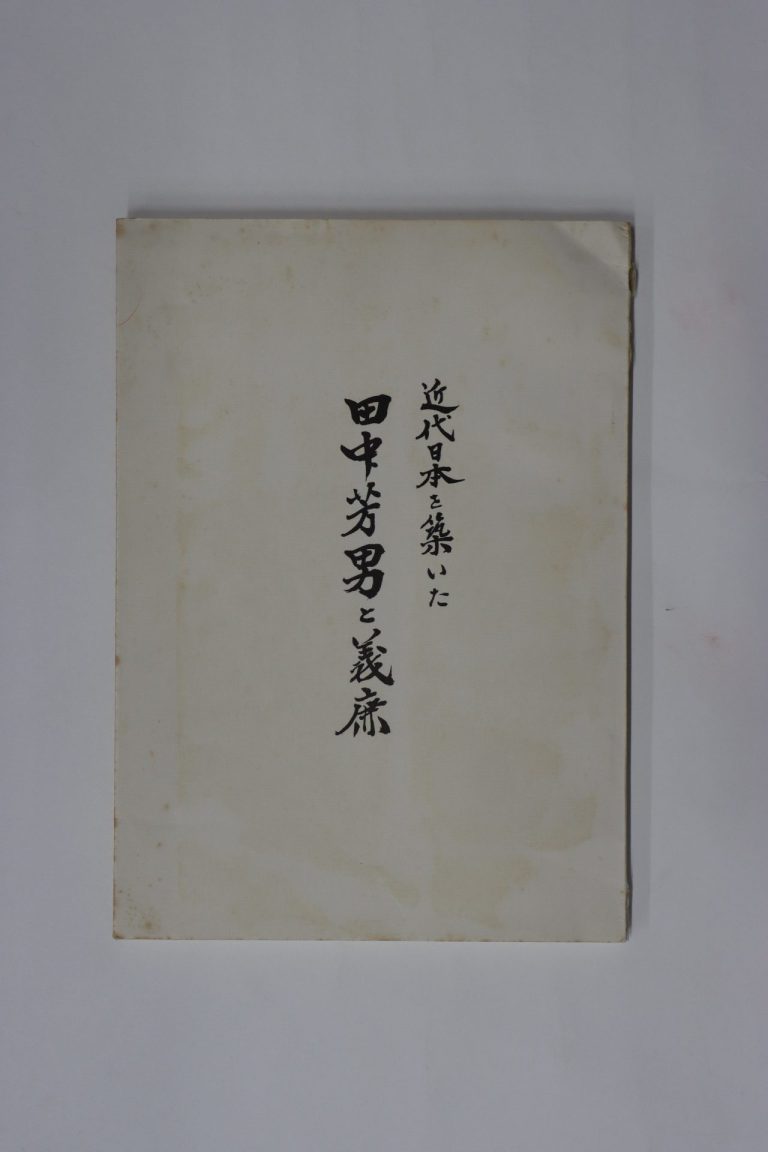 近代日本を築いた
田中芳男と義廉